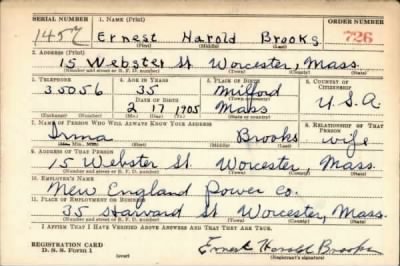 SERIAL NUMBER 1. NAME (Print) ORDER NUMBER
1457 Ernest Harold Brooks 726
(First) (Middle) (Last)
2. ADDRESS (Print)
15 Webster St Worcester, Mass.
(Number and street or R. F. D. number) (Town) (County) (State)
3. TELEPHONE 4. AGE IN YEARS 5. PLACE OF BIRTH 6. COUNTRY OF CITIZENSHIP
35056 35 Milford
DATE OF BIRTH (Town or county)
2 17 1905 Mass U.S.A.
(Exchange) (Number) (Mo.) (Day) (Yr.) (State or country)
7. NAME OF PERSON WHO WILL ALWAYS KNOW YOUR ADDRESS 8. RELATIONSHIP OF THAT PERSON
Irma Brooks wife
(Mr., Mrs., Miss) (First) (Middle) (Last)
9. ADDRESS OF THAT PERSON
15 Webster St. Worcester, Mass.
(Number and street or R. F. D. number) (Town) (County) (State)
10. EMPLOYER'S NAME
New England Power Co.
11. PLACE OF EMPLOYMENT OR BUSINESS
35 Harvard St Worcester, Mass.
(Number and street or R. F. D. number) (Town) (County) (State)
I AFFIRM THAT I HAVE VERIFIED ABOVE ANSWERS AND THAT THEY ARE TRUE.
REGISTRATION CARD Ernest Harold Brooks
D. S. S. Form 1 (over) (Registrant's signature)